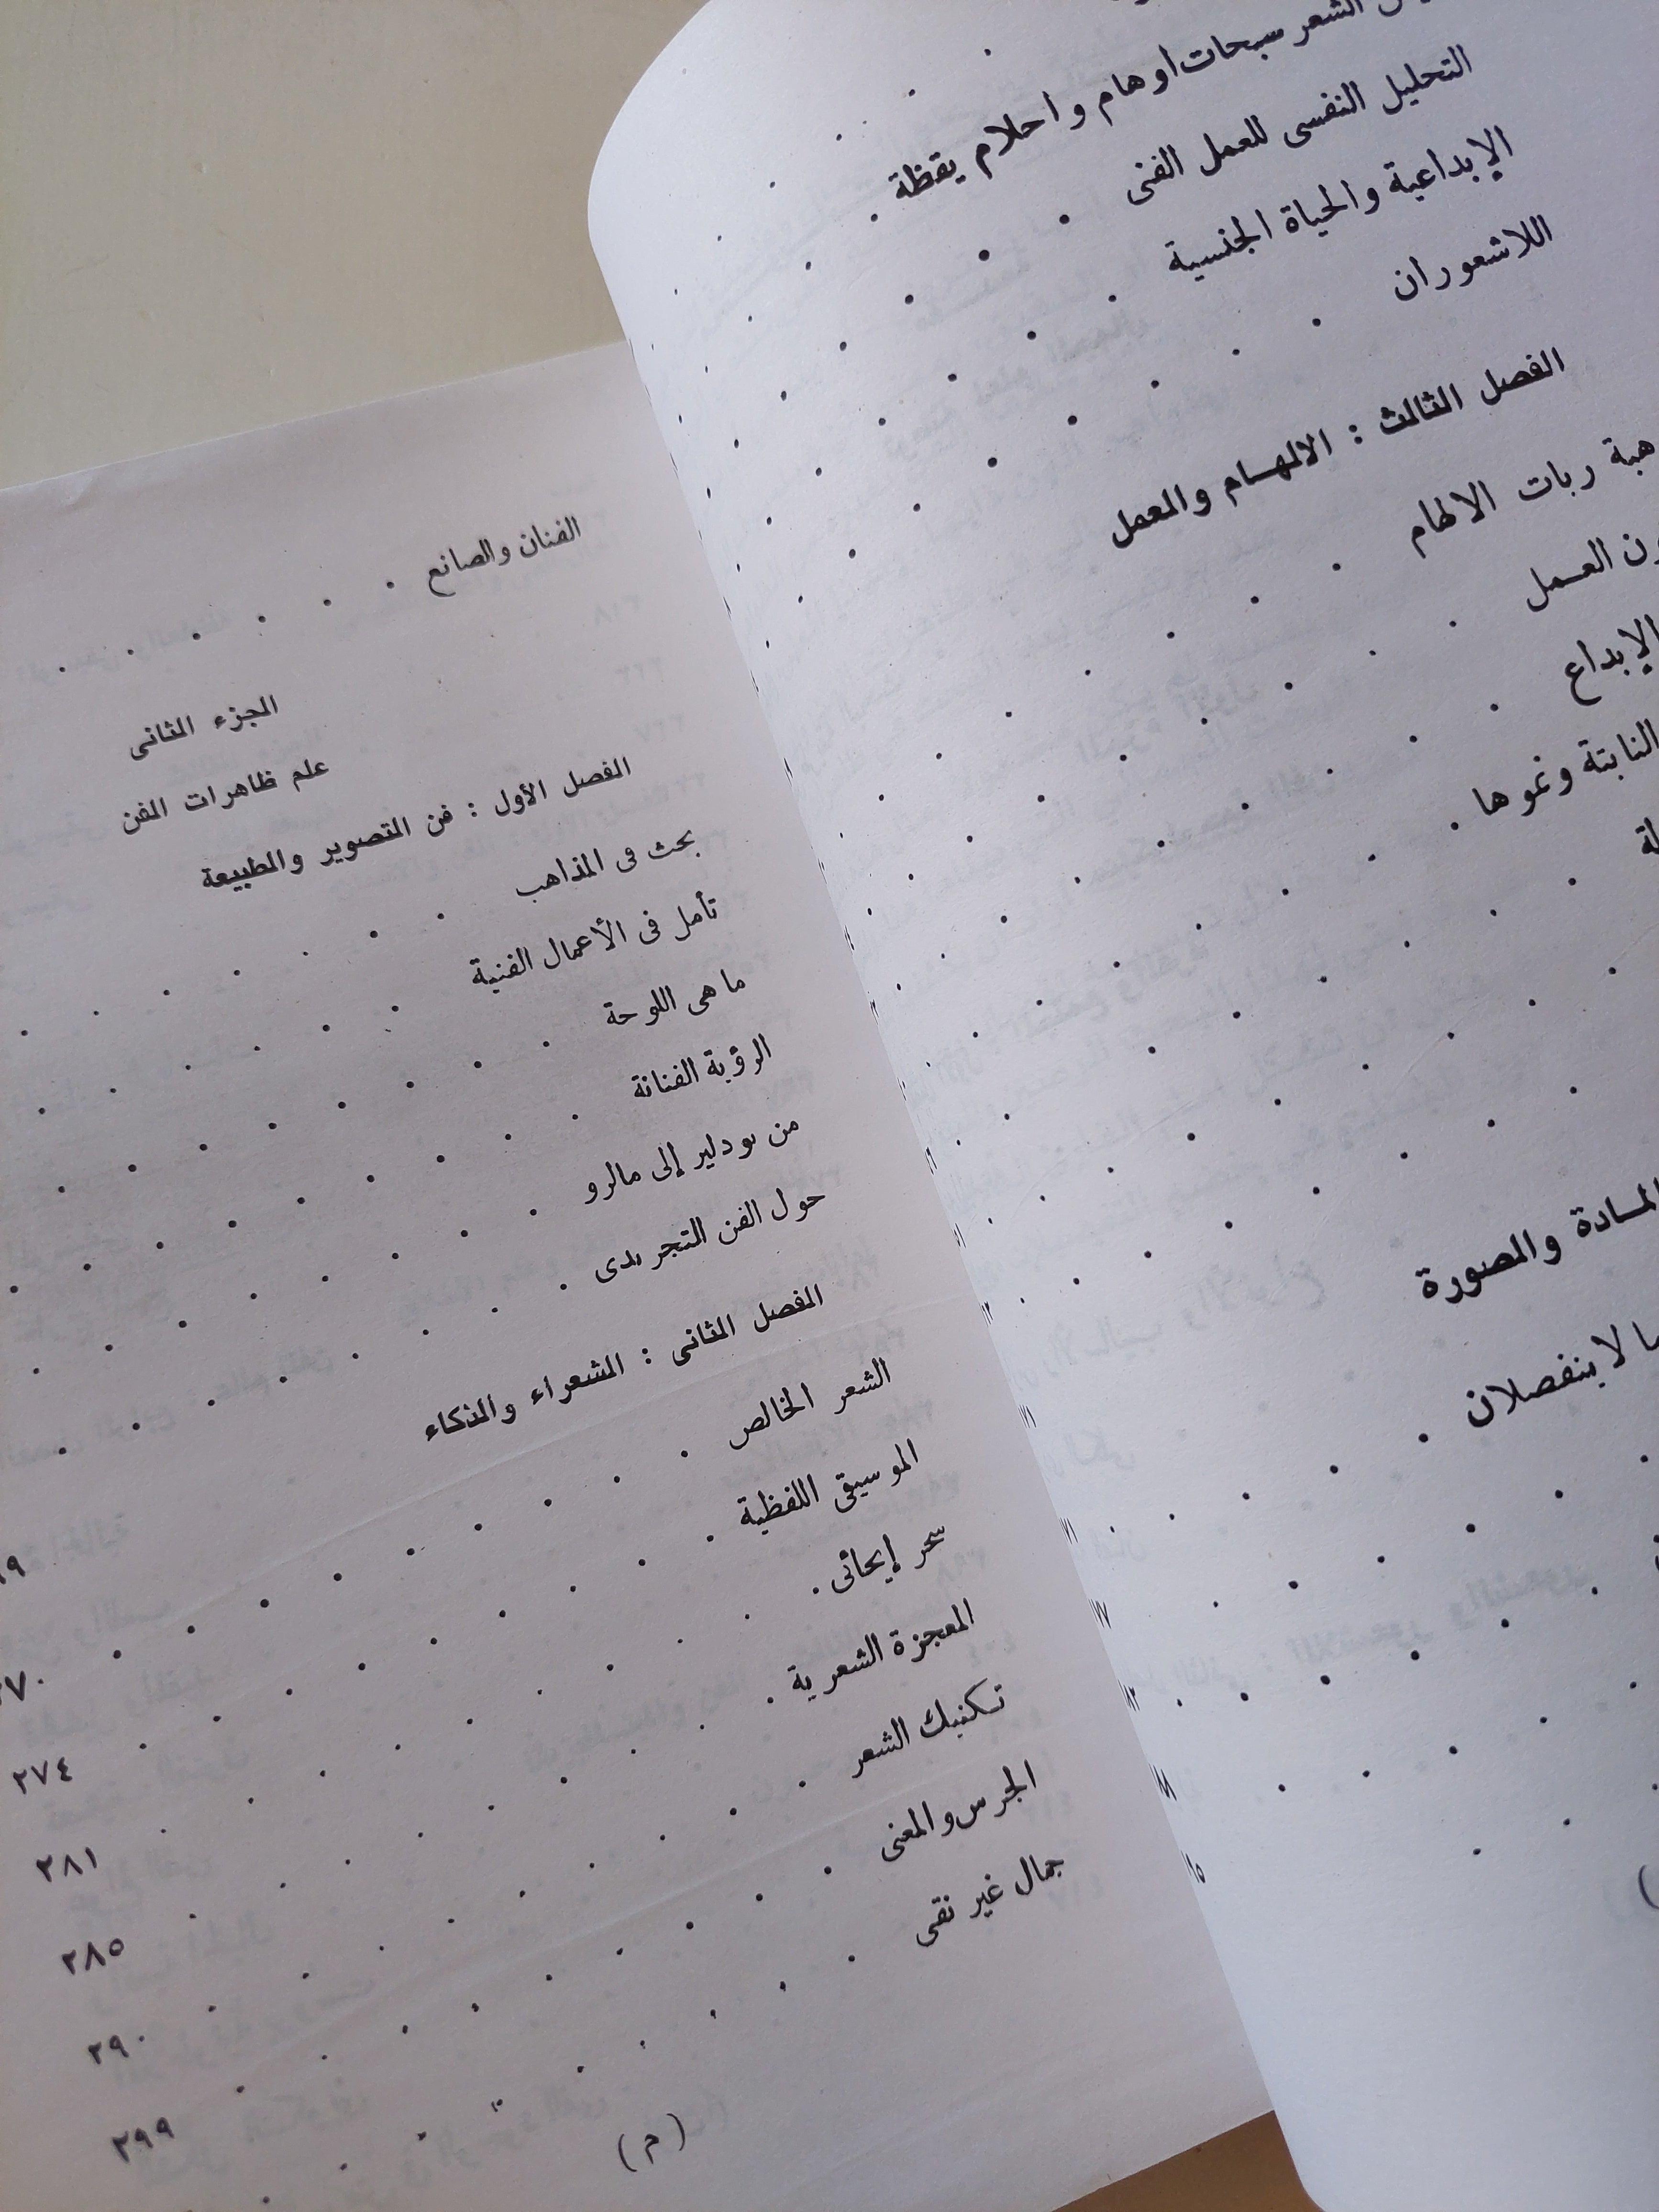 الشعر سبحات اوهام واحلام يقظة
التحليل النفسى للعمل الفنى
الإبداعية والحياة الجنسية
اللاشعوران
الفصل الثالث : الالهام والعمل
هبة ربات الالهام
العمل
الإبداع
النابتة ونموها
المادة والصورة
لا ينفصلان
الفنان والصانع
الجزء الثانى
علم ظاهرات الفن
الفصل الأول : فن التصوير والطبيعة
بحث فى المذاهب
تأمل فى الأعمال الفنية
ما هى اللوحة
الرؤية الفنانة
من بودلير إلى مالرو
حول الفن التجريدى
الفصل الثانى : الشعراء والذكاء
الشعر الخالص
الموسيقى اللفظية
سحر إيحائى
المعجزة الشعرية ٢٧٤
تكنيك الشعر ٢٨١
الجرس والمعنى ٢٨٥
جمال غير نقى ٢٩٠
٢٩٩
( م )